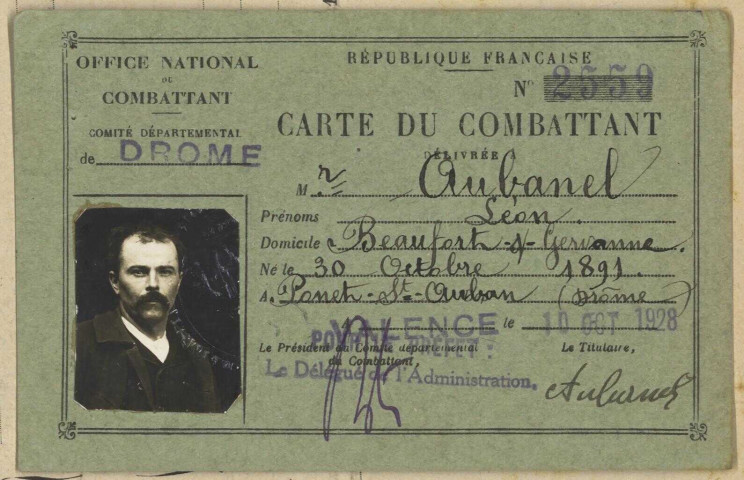 OFFICE NATIONAL
DU
COMBATTANT
COMITÉ DÉPARTEMENTAL
de DROME
RÉPUBLIQUE FRANÇAISE
N° 2559
CARTE DU COMBATTANT
DÉLIVRÉE
M r Aubanel
Prénoms Léon.
Domicile Beaufort-s/-Gervanne.
Né le 30 Octobre 1891.
A Ponet-St-Auban (Drôme)
VALENCE le 10 OCT 1928
POUR LE PRÉFET:
Le Président du Comité départemental
du Combattant,
Le Délégué de l'Administration.
Le Titulaire,
Aubanel